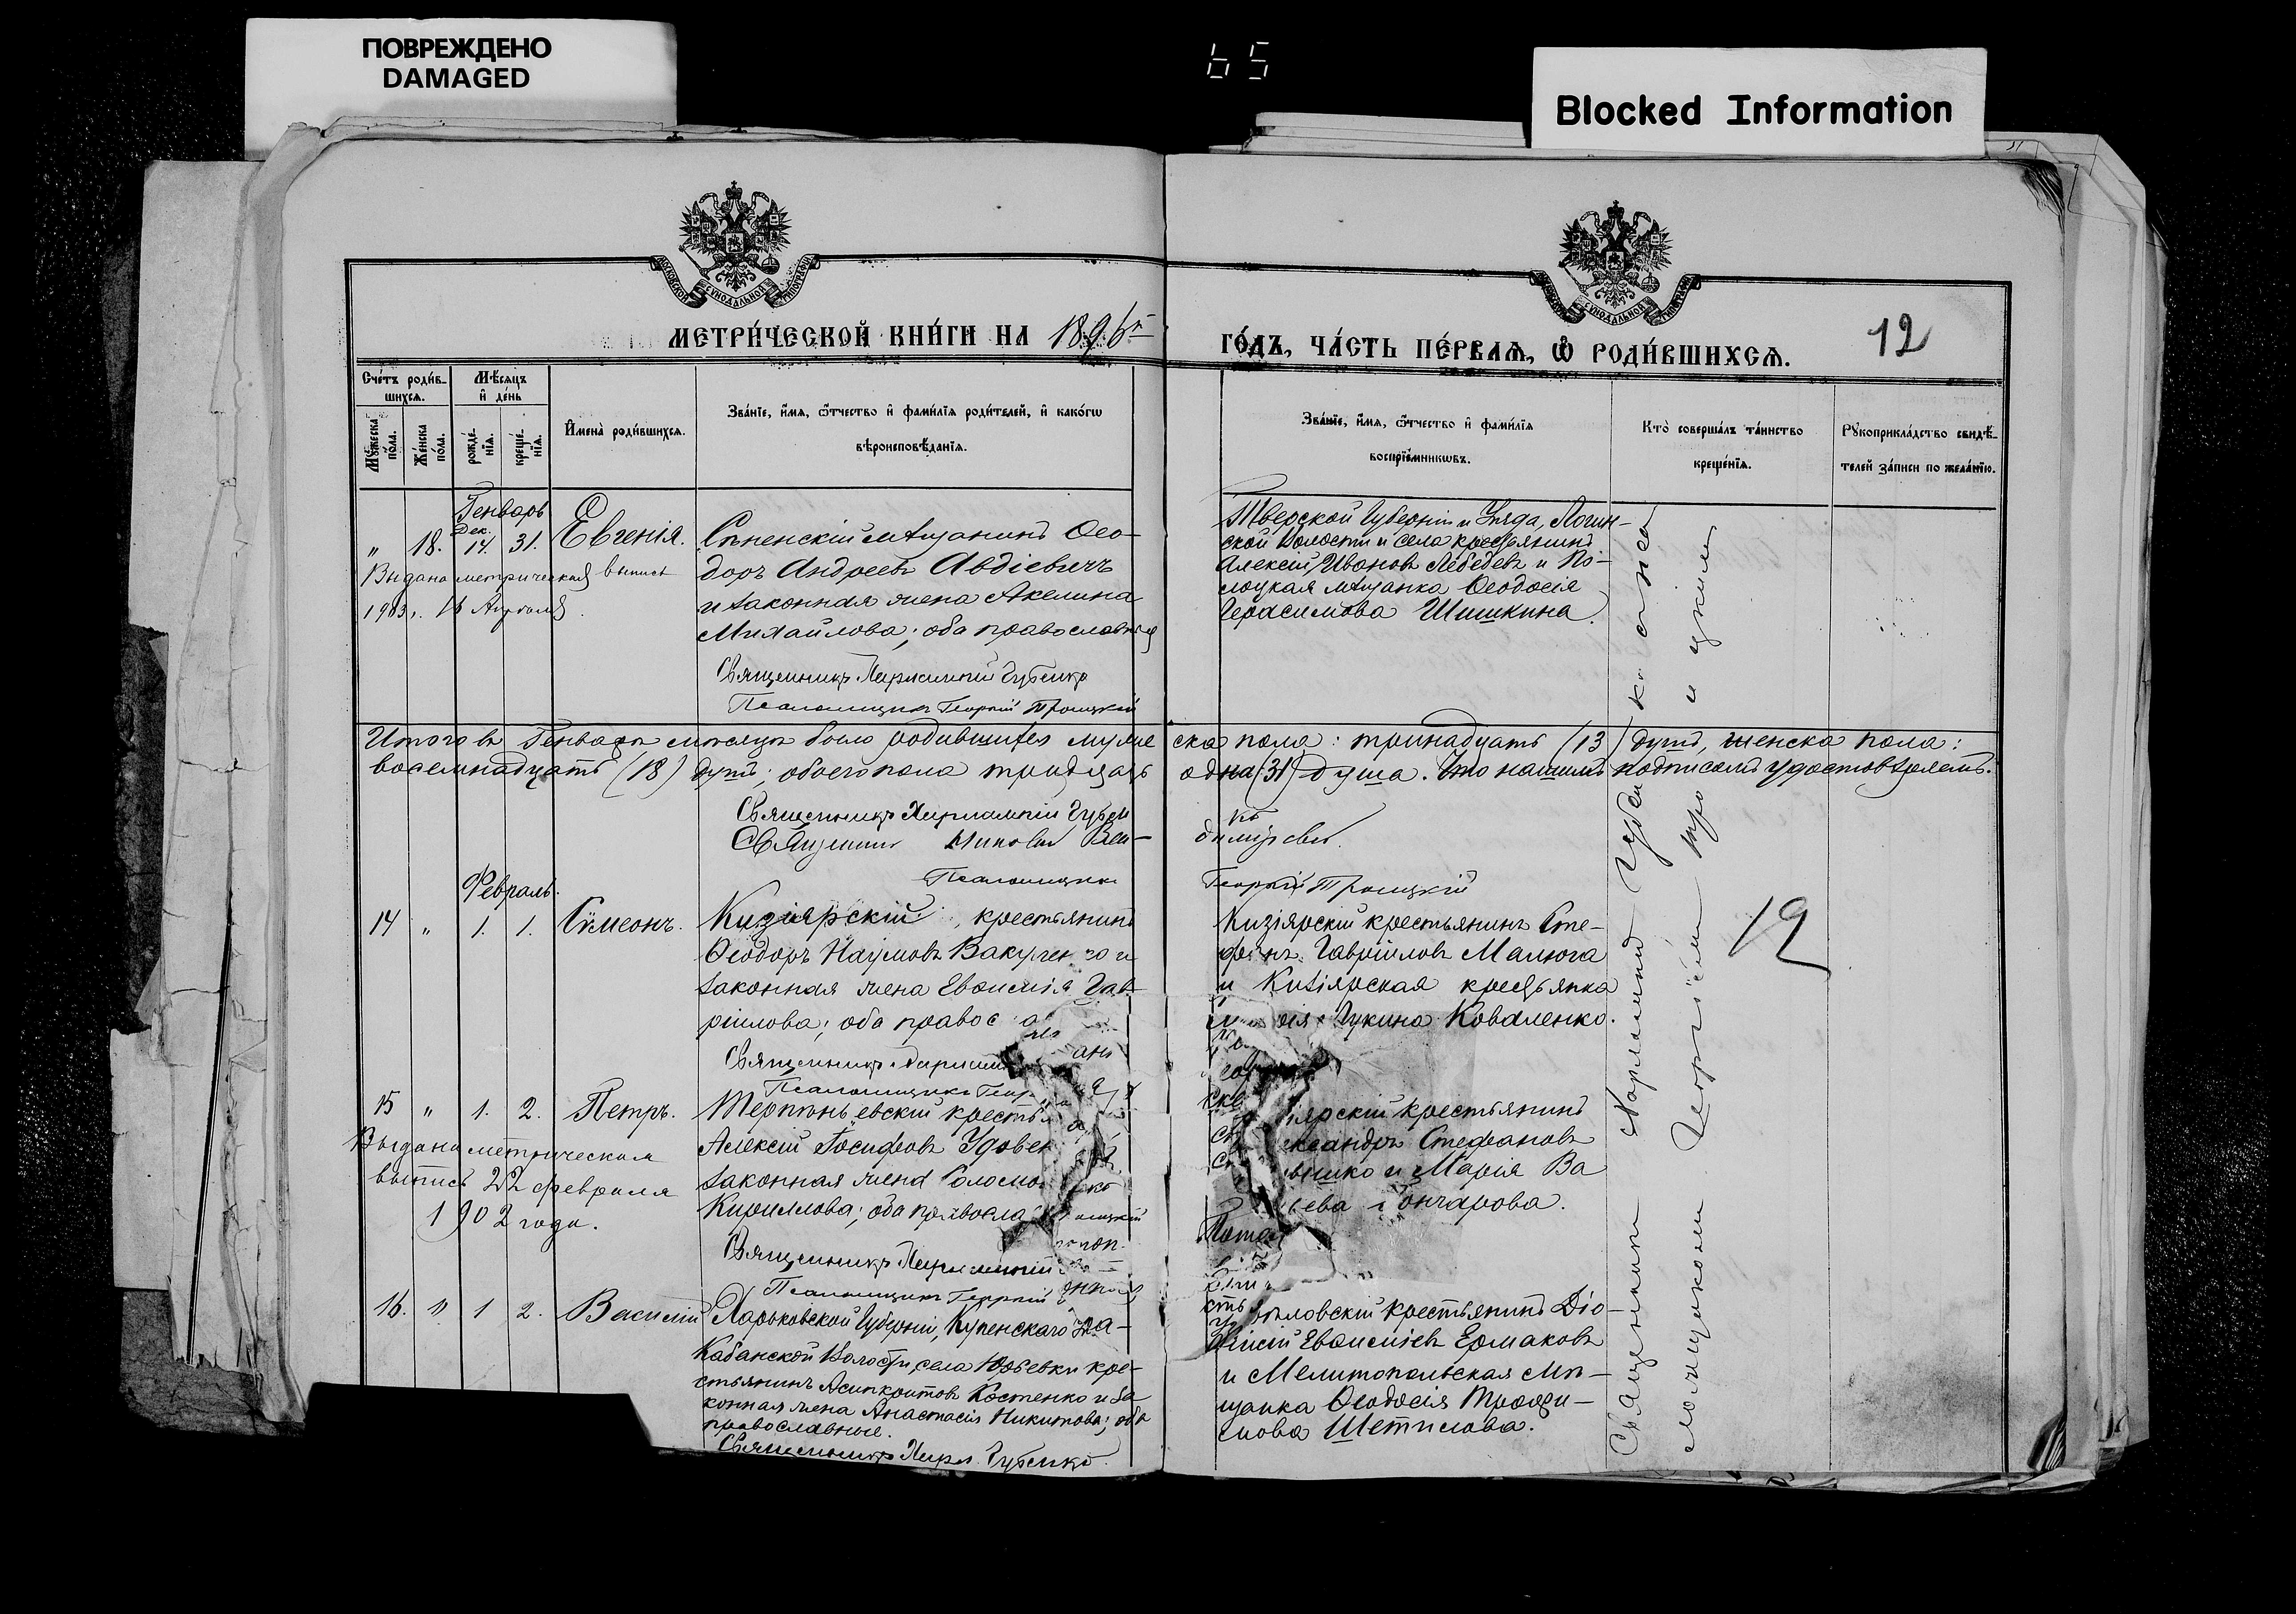 ПОВРЕЖДЕНО
DAMAGED
65
Blocked Information
МЕТРИ́ЧЕСКОЙ КНИ́ГИ НА 1896й
ГО́ДЪ, ЧА́СТЬ ПЕ́РВАЯ, Ѽ РОДИ́ВШИХСЯ.
12
Сче́тъ роди́в-
шихся.
Мѣ́сяцъ
и҆ де́нь
Му́жеска по́ла.
Же́нска по́ла.
рожде́-
нїя.
креще́-
нїя.
И҆мена̀ роди́вшихся.
Зва́нїе, и҆́мя, ѻ҆́тчество и҆ фами́лїя роди́телей, и҆ како́гѡ
вѣроисповѣ́данїя.
Зва́нїе, и҆́мя, ѻ҆́тчество и҆ фами́лїя
воспрїе́мникѡвъ.
Кто̀ соверша́лъ та́инство
креще́нїя.
Рꙋкоприкла́дство свидѣ́-
телей за́писи по жела́нїю.
Генварь
Дек.
" 18. 14. 31. Евгенія.
Выдана метрическая выпись
1903 г. 16 Апреля.
Сѣненскій мѣщанинъ Ѳео-
доръ Андреевъ Авдіевичъ
и законная жена Акелина
Михайлова; оба православныя
Священникъ Харлампій Губенко
Псаломщикъ Георгій Троицкій
Тверской Губерніи и Уѣзда, Логин-
ской Волости и села крестьянинъ
Алексій Ивановъ Лебедевъ и По-
лоцкая мѣщанка Ѳеодосія
Герасимова Шишкина.
Итого въ Генварѣ мѣсяцѣ было родившихся мужеска пола: тринадцать (13) душъ, женска пола:
восемнадцать (18) душъ; обоего пола тридцать одна (31) душа. Что нашимъ подписомъ удостовѣряемъ.
Священникъ Харлампій Губенко
Священникъ Николай Владиміровъ
Псаломщикъ Георгій Троицкій
Февраль.
14 " 1. 1. Сѵмеонъ.
Кизіярскій крестьянинъ
Ѳеодоръ Наумовъ Вакуленко и
законная жена Евѳимія Гав-
ріилова; оба правос
Священникъ Харламп
Псаломщикъ Геор
Кизіярскій крестьянинъ Сте-
фанъ Гавріиловъ Малюга
и Кизіярская крестьянка
Лукина Коваленко.
15 " 1. 2. Петръ.
Выдана метрическая
выпись 22 февраля
1902 года.
Терпѣньевскій кресть
Алексій Іосифовъ Удовен
законная жена Соломо
Кириллова; оба правосла
Священникъ Харлампій
Псаломщикъ Георгій
іярскій крестьянинъ
ксандръ Стефановъ
и Марія Ва
ева Гончарова.
16. " 1 2. Василій
Харьковской Губерніи, Купенскаго уѣз-
Кабанской Волости, села Юрьевки кре-
стьянинъ Асинкритовъ Костенко и за-
конная жена Анастасія Никитова; оба
православные.
Священникъ Харл. Губенко.
ловскій крестьянинъ Діо-
нисій Евѳиміевъ Ермаковъ
и Мелитопольская Мѣ-
щанка Ѳеодосія Трофи-
мова Шетилова.
Священникъ Харлампій Губенко съ
псаломщикомъ Георгіемъ Троицкимъ
12